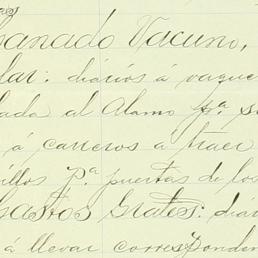 Ganado Vacuno,
lar: diários á vaque
lada al Alamo pª s
á carreros a traer
illos pª puertas de los
Gastos Grates: diár
á llevar correspond